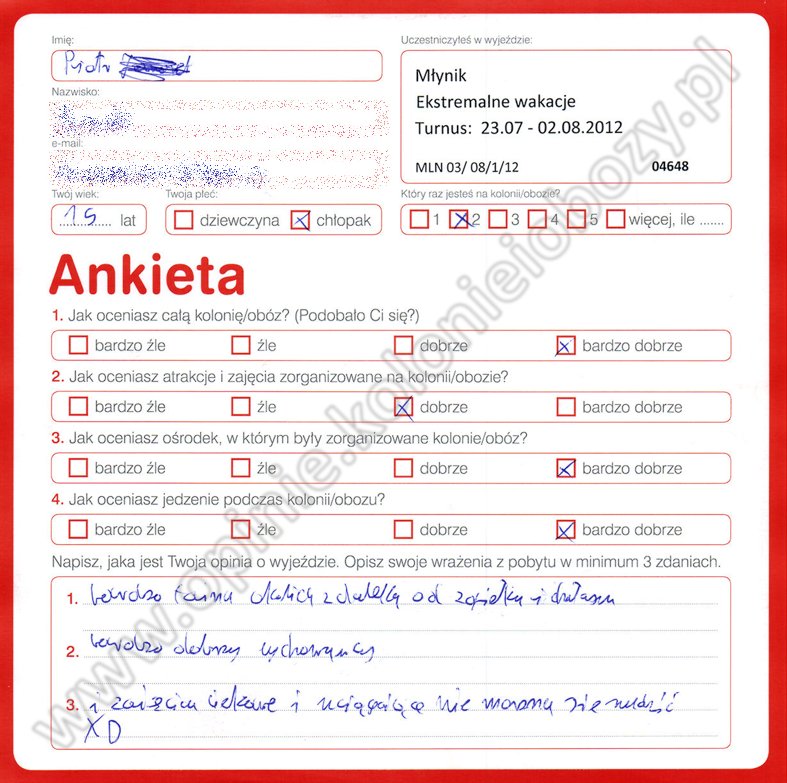 Imię:
Piotr
Uczestniczyłeś w wyjeździe:
Młynik
Ekstremalne wakacje
Turnus: 23.07 - 02.08.2012
MLN 03/ 08/1/12 04648
Nazwisko:
e-mail:
Twój wiek:
15 lat
Twoja płeć:
dziewczyna chłopak
Który raz jesteś na kolonii/obozie?
1 2 3 4 5 więcej, ile .......
Ankieta
1. Jak oceniasz całą kolonię/obóz? (Podobało Ci się?)
bardzo źle źle dobrze bardzo dobrze
2. Jak oceniasz atrakcje i zajęcia zorganizowane na kolonii/obozie?
bardzo źle źle dobrze bardzo dobrze
3. Jak oceniasz ośrodek, w którym były zorganizowane kolonie/obóz?
bardzo źle źle dobrze bardzo dobrze
4. Jak oceniasz jedzenie podczas kolonii/obozu?
bardzo źle źle dobrze bardzo dobrze
Napisz, jaka jest Twoja opinia o wyjeździe. Opisz swoje wrażenia z pobytu w minimum 3 zdaniach.
1. bardzo okolica z daleka od zgiełku i hałasu
2. bardzo dobrzy wychowawcy
3. i zajęcia ciekawe i wciągające nie można się nudzić
XD
www.opinie.kolonieiobozy.pl